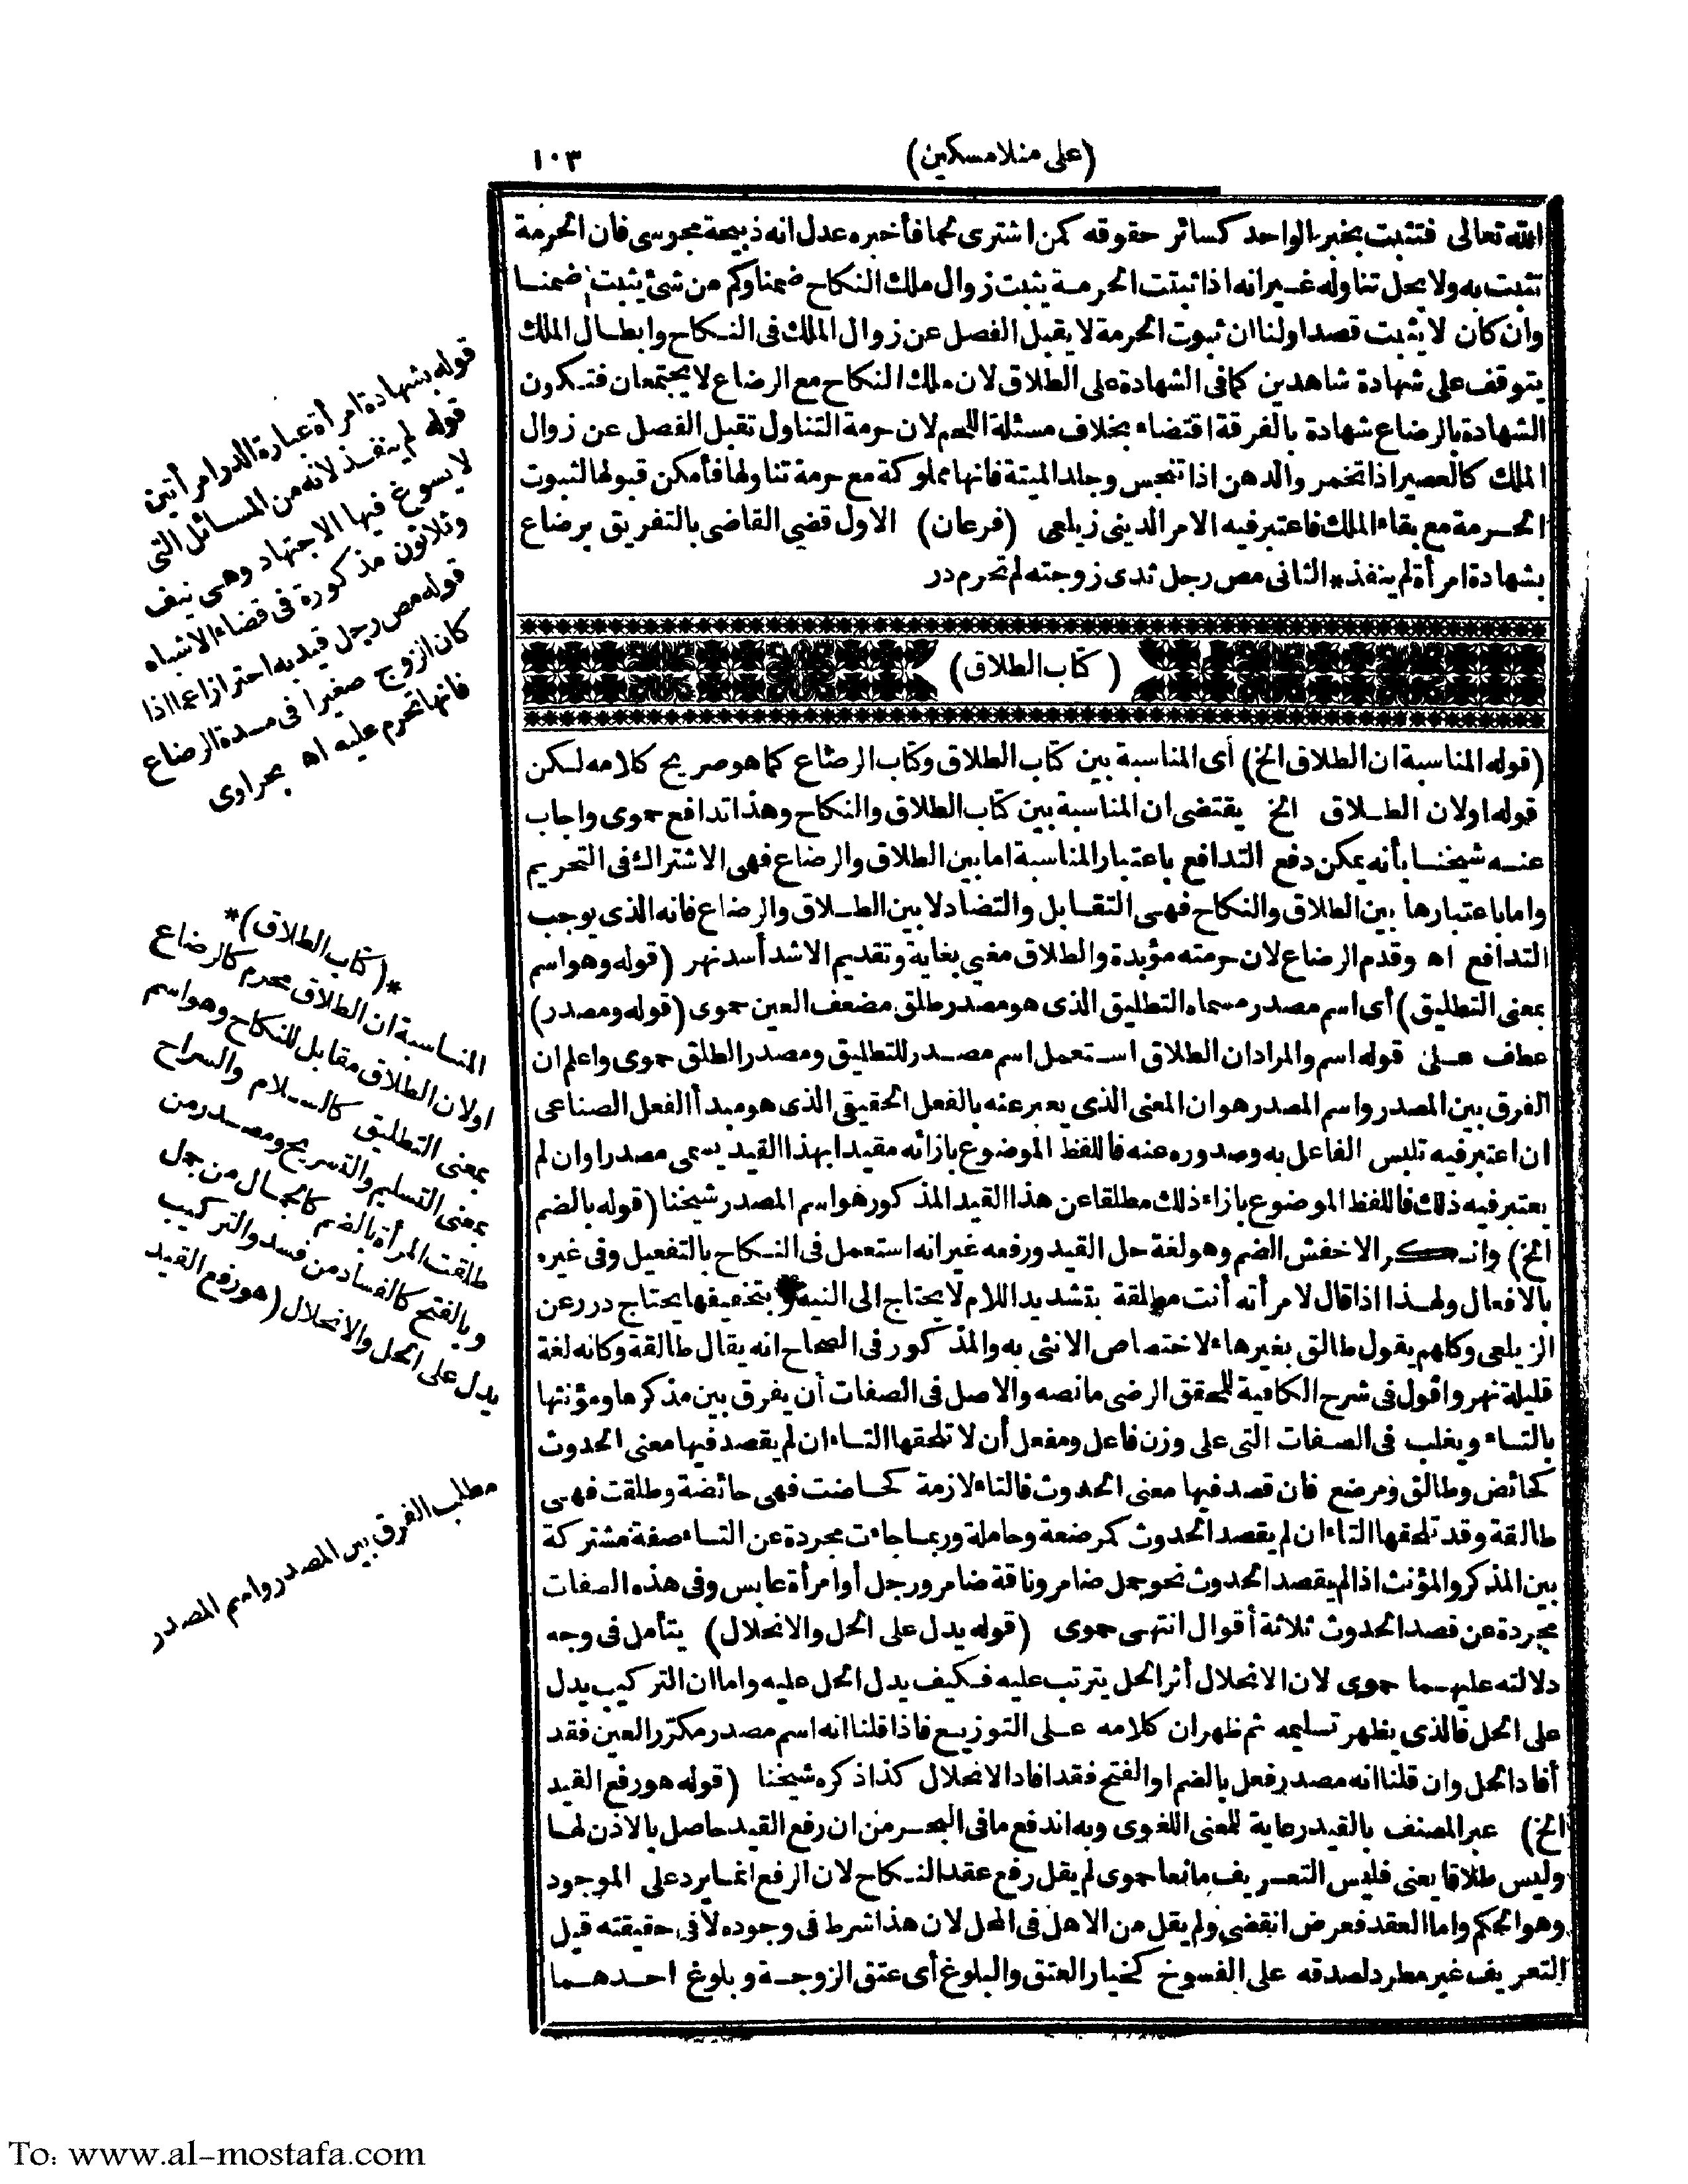 (على منلا مسكين)
١٠٣
الله تعالى فتثبت بخبر الواحد كسائر حقوقه كمن اشترى لحما فأخبره عدل انه ذبيحة مجوسى فان الحرمة
تثبت به ولا يحل تناوله غير انه اذا ثبتت الحرمة يثبت زوال ملك النكاح ضمنا وكم من شئ يثبت ضمنا
وان كان لا يثبت قصدا ولنا ان ثبوت الحرمة لا يقبل الفصل عن زوال الملك فى النكاح وابطال الملك
يتوقف على شهادة شاهدين كما فى الشهادة على الطلاق لان ملك النكاح مع الرضاع لا يجتمعان فتكون
الشهادة بالرضاع شهادة بالفرقة اقتضاء بخلاف مسئلة اللحم لان حرمة التناول تقبل الفصل عن زوال
الملك كالعصير اذا تخمر والدهن اذا تنجس وجلد الميتة فانها مملوكة مع حرمة تناولها فأمكن قبولها لثبوت
الحرمة مع بقاء الملك فاعتبر فيه الامر الدينى زيلعى (فرعان) الاول قضى القاضى بالتفريق برضاع
بشهادة امرأة لم ينفذ* الثانى مص رجل ثدى زوجته لم تحرم در
(كتاب الطلاق)
(قوله المناسبة ان الطلاق الخ) أى المناسبة بين كتاب الطلاق وكتاب الرضاع كما هو صريح كلامه لكن
قوله اولان الطلاق الخ يقتضى ان المناسبة بين كتاب الطلاق والنكاح وهذا تدافع حموى واجاب
عنه شيخنا بأنه يمكن دفع التدافع باعتبار المناسبة اما بين الطلاق والرضاع فهى الاشتراك فى التحريم
واما باعتبارها بين الطلاق والنكاح فهى التقابل والتضاد لا بين الطلاق والرضاع فانه الذى يوجب
التدافع اه وقدم الرضاع لان حرمته مؤبدة والطلاق مغيى بغاية وتقديم الاشد أسد نهر (قوله وهو اسم
بمعنى التطليق) أى اسم مصدر مسماه التطليق الذى هو مصدر طلق مضعف العين حموى (قوله ومصدر)
عطف على قوله اسم والمراد ان الطلاق استعمل اسم مصدر للتطليق ومصدر الطلق حموى واعلم ان
الفرق بين المصدر واسم المصدر هو ان المعنى الذى يعبر عنه بالفعل الحقيقى الذى هو مبدأ الفعل الصناعى
ان اعتبر فيه تلبس الفاعل به وصدوره عنه فاللفظ الموضوع بازائه مقيدا بهذا القيد يسمى مصدرا وان لم
يعتبر فيه ذلك فاللفظ الموضوع بازاء ذلك مطلقا عن هذا القيد المذكور هو اسم المصدر شيخنا (قوله بالضم
الخ) وانكر الاخفش الضم وهو لغة حل القيد ورفعه غير انه استعمل فى النكاح بالتفعيل وفى غيره
بالافعال ولهذا اذا قال لامرأته أنت مطلقة بتشديد اللام لا يحتاج الى النية وبتخفيفها يحتاج درر عن
الزيلعى وكلهم يقول طالق بغير هاء لاختصاص الانثى به والمذكور فى الصحاح انه يقال طالقة وكانه لغة
قليلة نهر واقول فى شرح الكافية للمحقق الرضى ما نصه والاصل فى الصفات أن يفرق بين مذكرها ومؤنثها
بالتاء ويغلب فى الصفات التى على وزن فاعل ومفعل أن لا تلحقها التاء ان لم يقصد فيها معنى الحدوث
كحائض وطالق ومرضع فان قصد فيها معنى الحدوث فالتاء لازمة كحاضت فهى حائضة وطلقت فهى
طالقة وقد تلحقها التاء ان لم يقصد الحدوث كمرضعة وحاملة وربما جاءت مجردة عن التاء صفة مشتركة
بين المذكر والمؤنث اذا لم يقصد الحدوث نحو جمل ضامر وناقة ضامر ورجل أو امرأة عابس وفى هذه الصفات
مجردة عن قصد الحدوث ثلاثة أقوال انتهى حموى (قوله يدل على الحل والانحلال) يتأمل فى وجه
دلالته عليهما حموى لان الانحلال أثر الحل يترتب عليه فكيف يدل الحل عليه واما ان التركيب يدل
على الحل فالذى يظهر تسليمه ثم ظهر ان كلامه على التوزيع فاذا قلنا انه اسم مصدر مكرر العين فقد
أفاد الحل وان قلنا انه مصدر فعل بالضم او الفتح فقد افاد الانحلال كذا ذكره شيخنا (قوله هو رفع القيد
الخ) عبر المصنف بالقيد رعاية للمعنى اللغوى وبه اندفع ما فى البحر من ان رفع القيد حاصل بالاذن لها
وليس طلاقا يعنى فليس التعريف مانعا حموى لم يقل رفع عقد النكاح لان الرفع انما يرد على الموجود
وهو الحكم واما العقد فعرض انقضى ولم يقل من الاهل فى المحل لان هذا شرط فى وجوده لا فى حقيقته قيل
التعريف غير مطرد لصدقه على الفسوخ كخيار العتق والبلوغ أى عتق الزوجة وبلوغ احدهما
قوله بشهادة امرأة عبارة الدر امرأتين
قوله لم ينفذ لانه من المسائل التى
لا يسوغ فيها الاجتهاد وهى نيف
وثلاثون مذكورة فى قضاء الاشباه
قوله مص رجل قيد به احترازا عما اذا
كان الزوج صغيرا فى مدة الرضاع
فانها تحرم عليه اه بحراوى
*(كتاب الطلاق)*
المناسبة ان الطلاق محرم كالرضاع
اولان الطلاق مقابل للنكاح وهو اسم
بمعنى التطليق كالسلام والسراح
بمعنى التسليم والتسريح ومصدر من
طلقت المرأة بالضم كالجمال من جمل
وبالفتح كالفساد من فسد والتركيب
يدل على الحل والانحلال (هو رفع القيد
مطلب الفرق بين المصدر واسم المصدر
To: www.al-mostafa.com